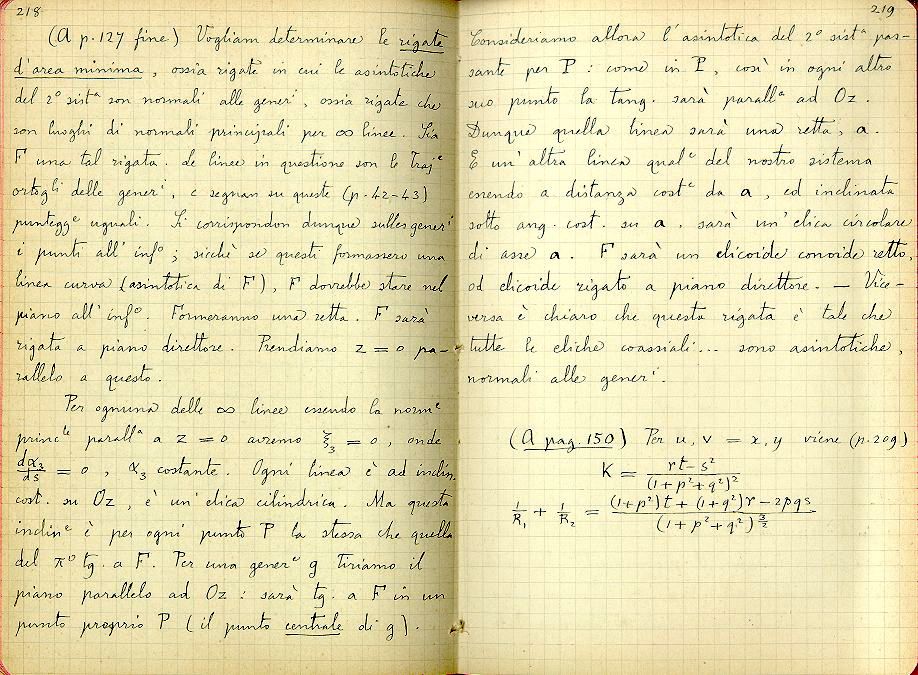 218
(A p. 127 fine) Vogliam determinare le rigate
d'area minima, ossia rigate in cui le asintotiche
del 2° sistᵃ son normali alle generⁱ, ossia rigate che
son luoghi di normali principali per ∞ linee. Sia
F una tal rigata. Le linee in questione son le Trajᵉ
ortogˡⁱ delle generⁱ, e segnan su queste (p. 42-43)
punteggᵉ uguali. Si corrispondon dunque sulle generⁱ
i punti all'infᵒ; sicchè se questi formassero una
linea curva (asintotica di F), F dovrebbe stare nel
piano all'infᵒ. Formeranno una retta. F sarà
rigata a piano direttore. Prendiamo z = 0 pa-
rallelo a questo.
Per ognuna delle ∞ linee essendo la normᵉ
princˡᵉ parallᵃ a z = 0 avremo ξ₃ = 0, onde
dα₃/ds = 0, α₃ costante. Ogni linea è ad inclin.
cost. su Oz, è un'elica cilindrica. Ma questa
inclinᵉ è per ogni punto P la stessa che quella
del πⁿᵒ tg. a F. Per una generᵉ g tiriamo il
piano parallelo ad Oz: sarà tg. a F in un
punto proprio P (il punto centrale di g).
219
Consideriamo allora l'asintotica del 2° sistᵃ pas-
sante per P: come in P, così in ogni altro
suo punto la tang. sarà parallᵃ ad Oz.
Dunque quella linea sarà una retta, a.
E un'altra linea qualᵉ del nostro sistema
essendo a distanza costᵉ da a, ed inclinata
sotto ang. cost. su a, sarà un'elica circolare
di asse a. F sarà un elicoide conoide retto,
od elicoide rigato a piano direttore. — Vice-
versa è chiaro che questa rigata è tale che
tutte le eliche coassiali... sono asintotiche,
normali alle generⁱ.
(A pag. 150) Per u, v = x, y viene (p. 209)
K = (rt - s²)/(1+p²+q²)²
1/R₁ + 1/R₂ = ((1+p²)t + (1+q²)r - 2pqs)/(1+p²+q²)^(3/2)